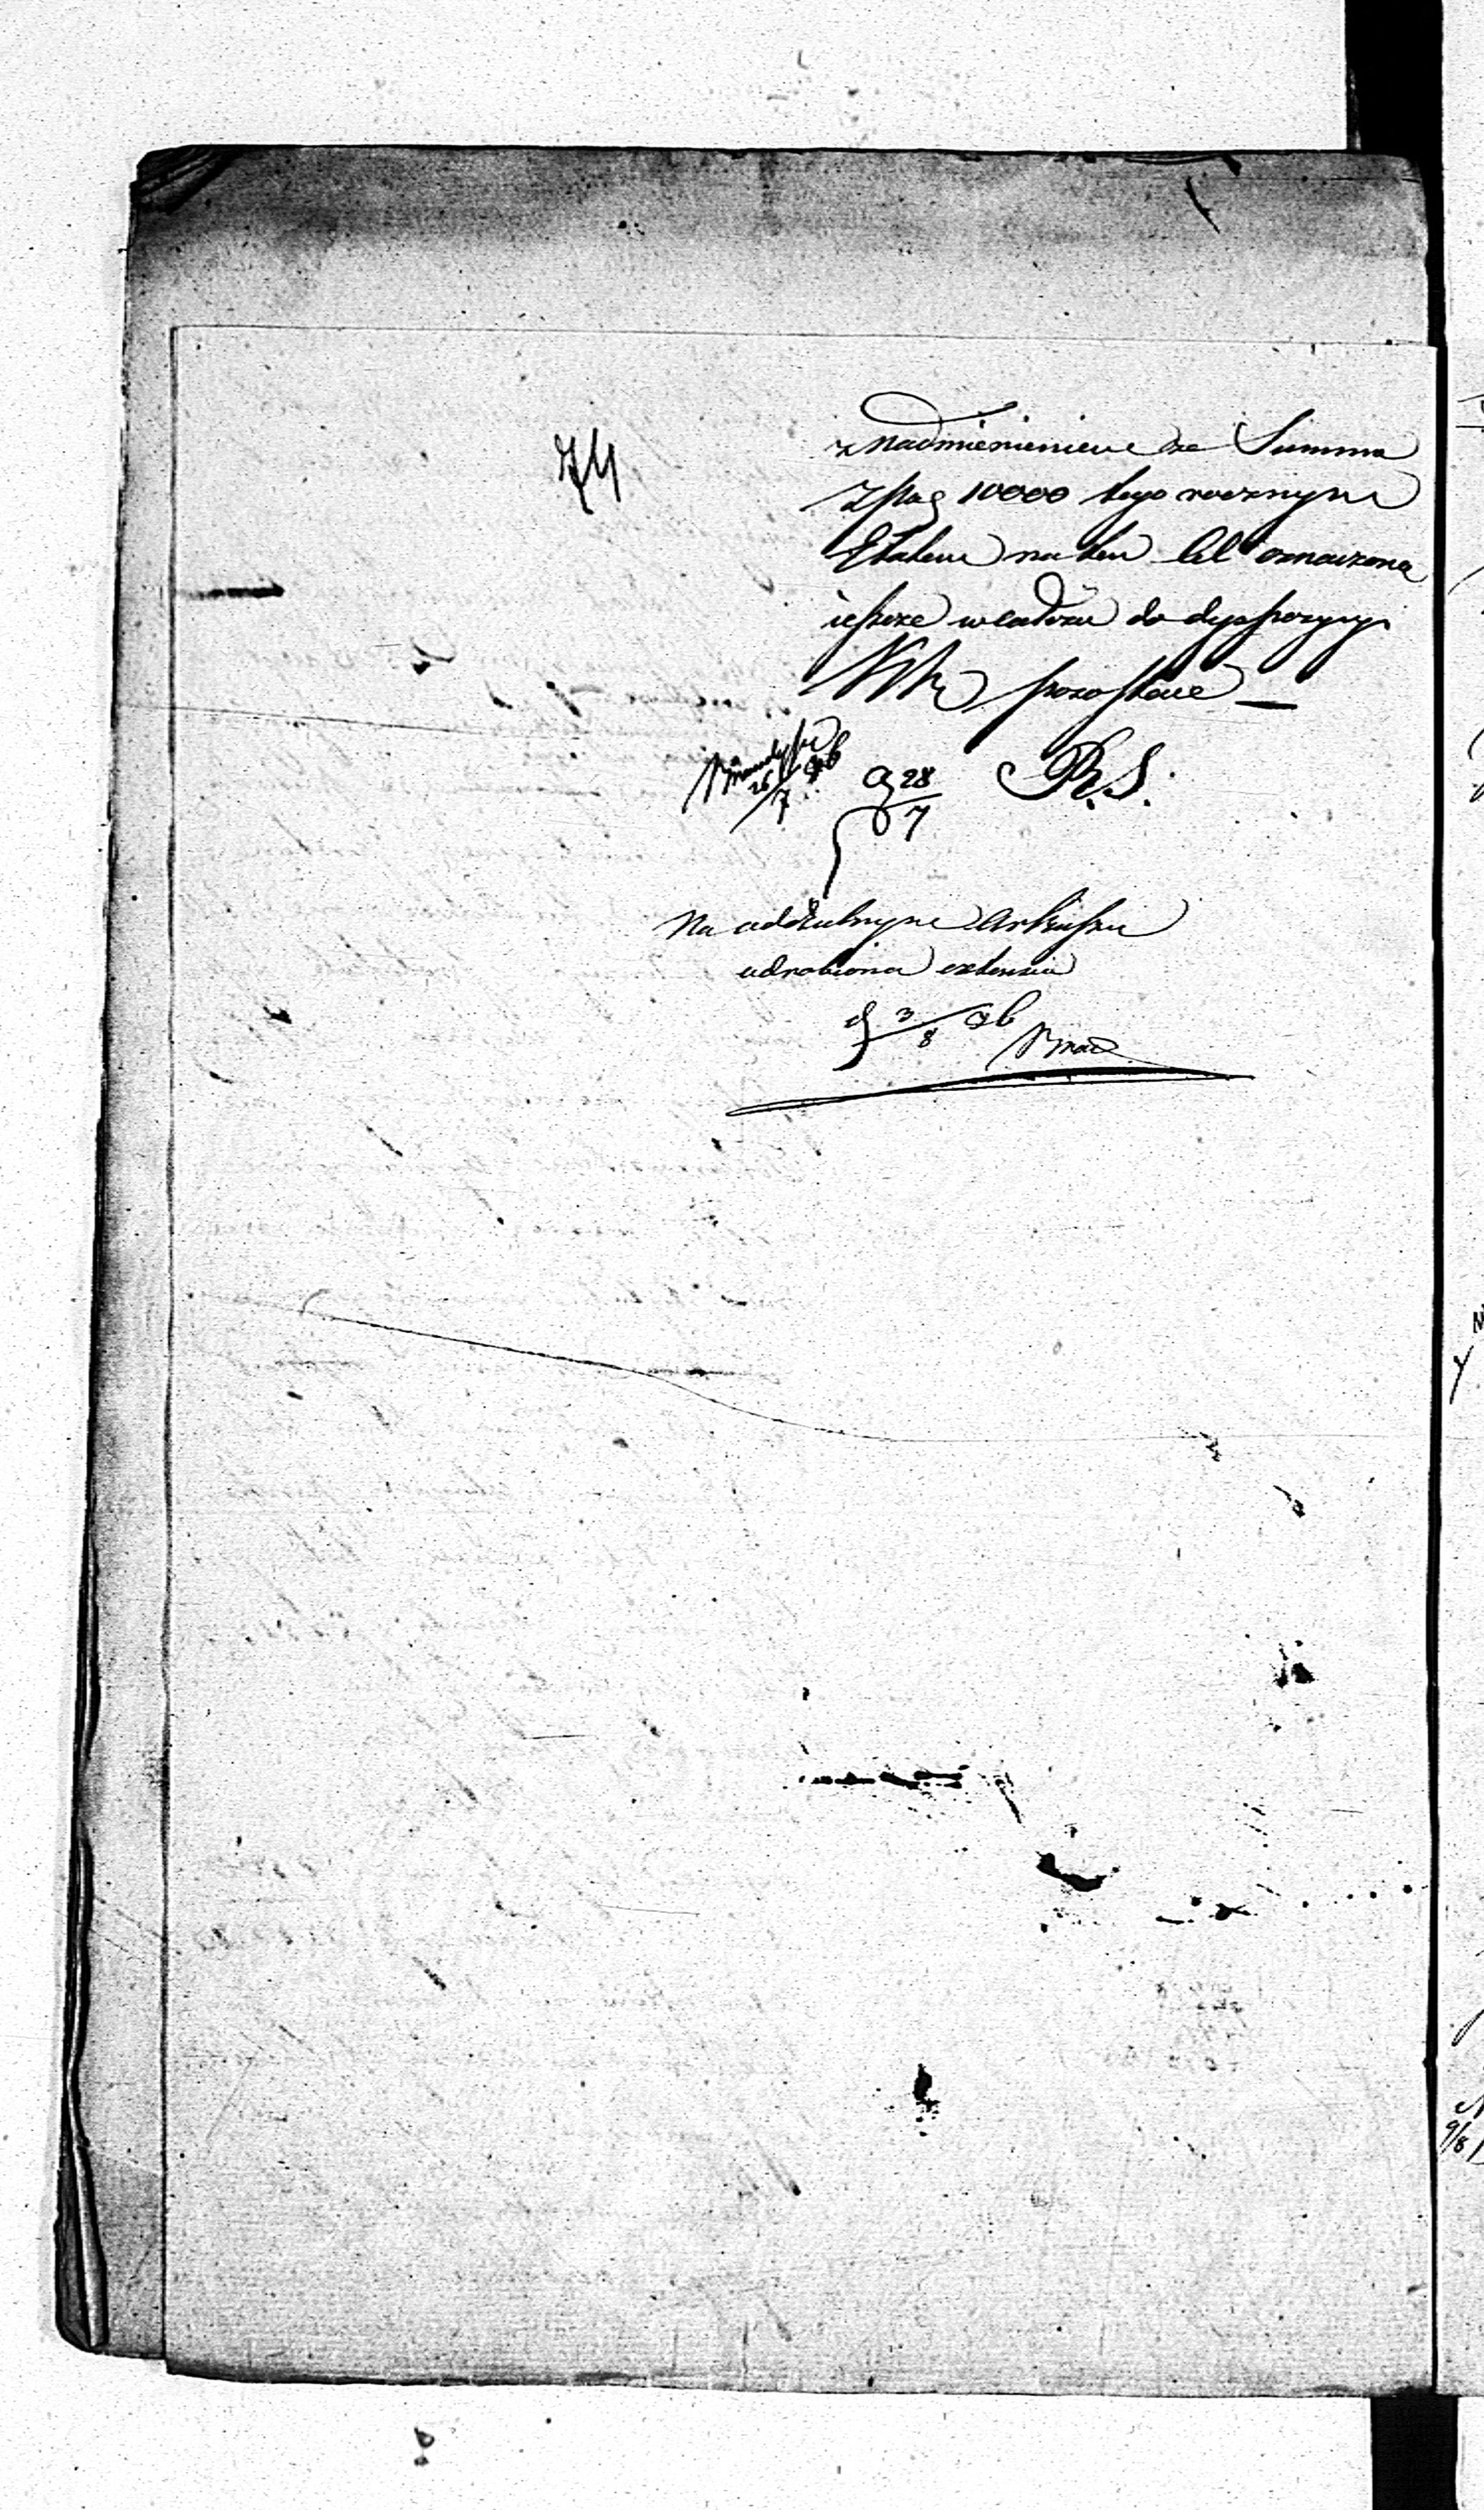 74
z nadmienieniem że Summa
Złpag 10000 tego rocznym
Etatem na ten Cel oznaczona
ieszcze w całości do dyspozycyi
pozostaie —
26/7
28/7 R. S.
Na oddzielnym Arkuszu
odrobiona extensia
d 3/8